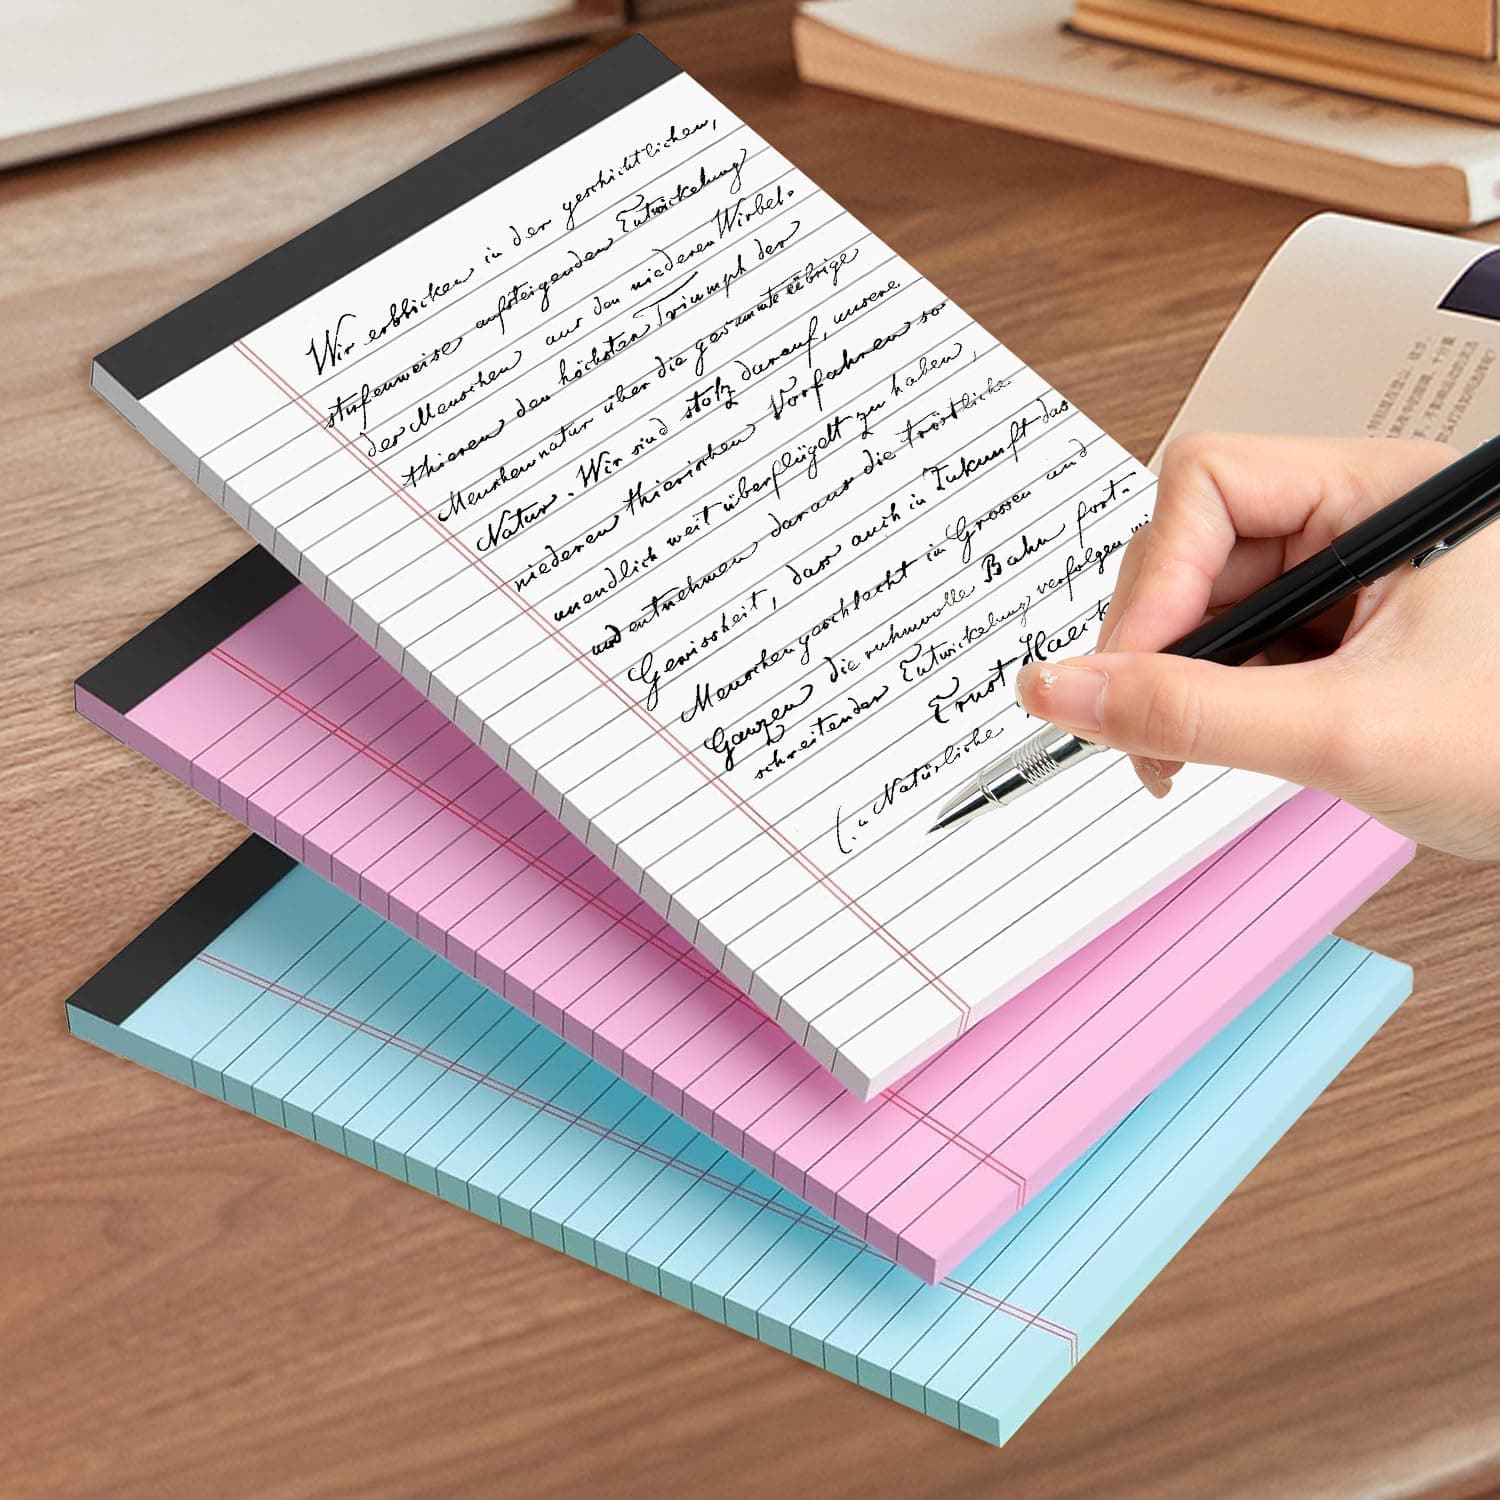 Wir erblicken in der geschichtlichen,
stufenweise aufsteigenden Entwickelung
der Menschen aus den niederen Wirbel-
thieren den höchsten Triumph der
Menschennatur über die gesammte übrige
Natur. Wir sind stolz darauf, unsere
niederen thierischen Vorfahren so
unendlich weit überflügelt zu haben,
und entnehmen daraus die tröstliche
Gewissheit, dass auch in Zukunft das
Menschengeschlecht im Grossen und
Ganzen die ruhmvolle Bahn fort-
schreitender Entwickelung verfolgen wi
Ernst Haeck
(„Natürliche